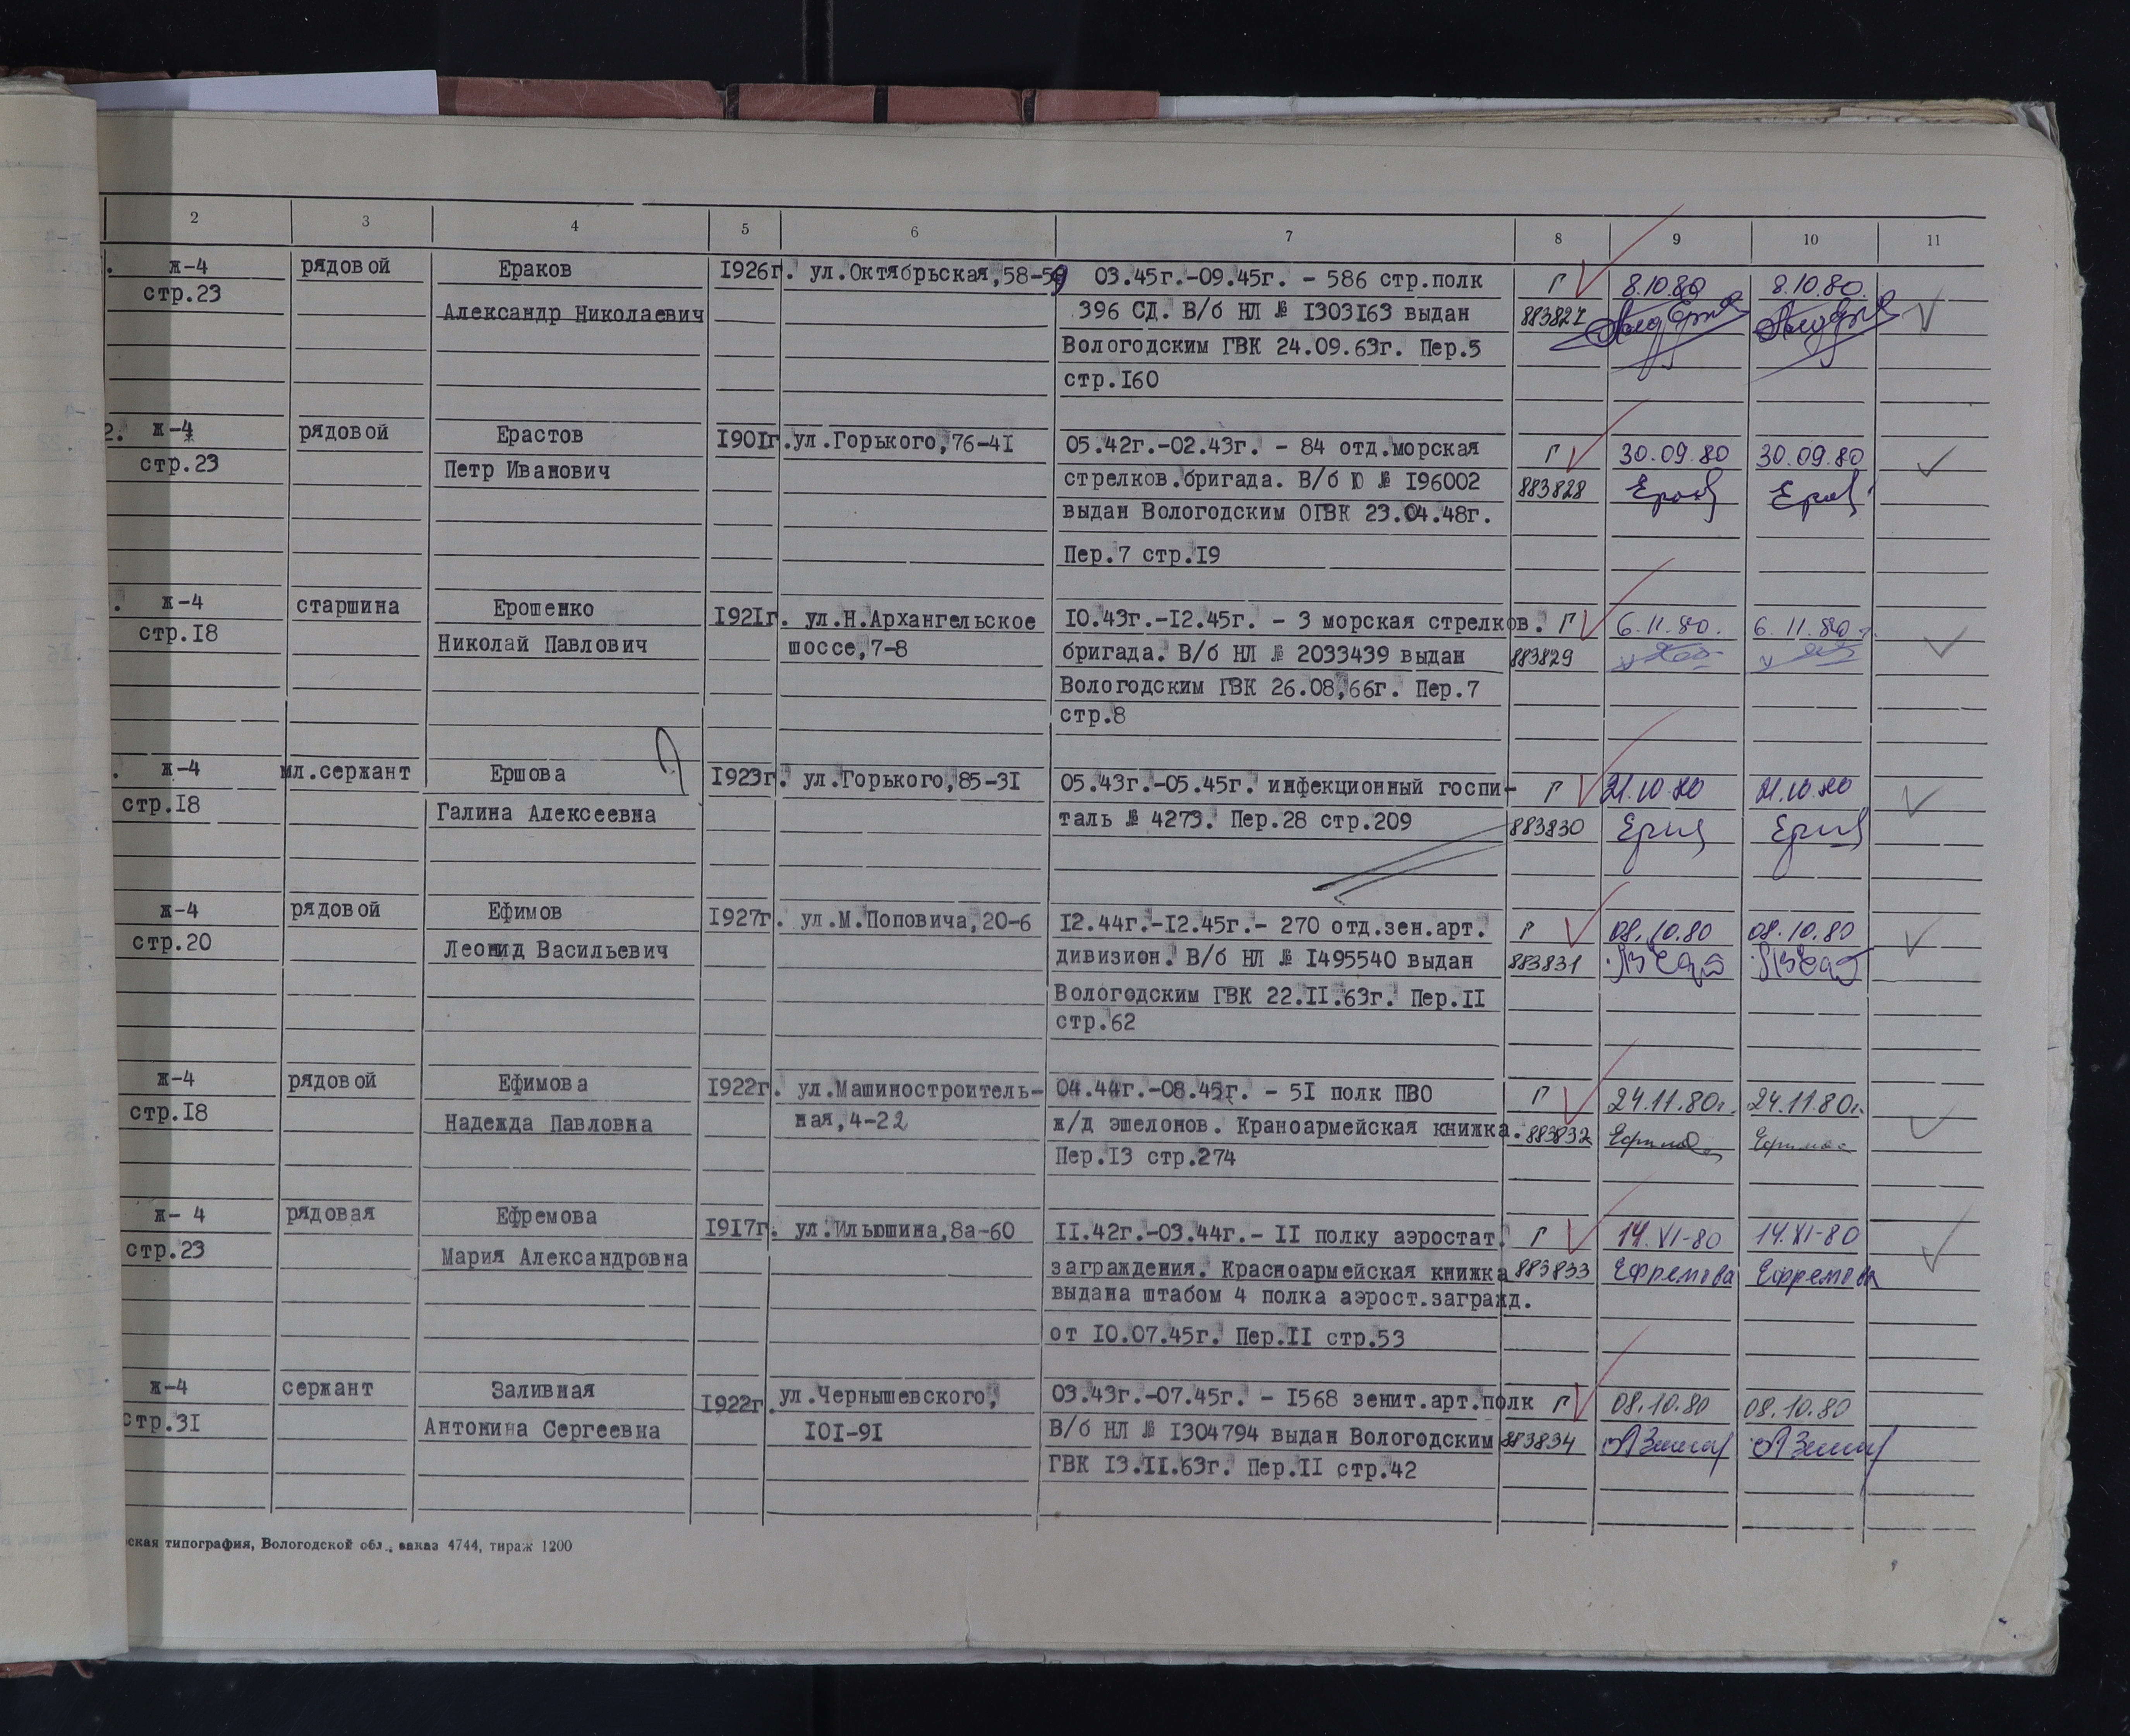 2 3 4 5 6 7 8 9 10 11
ж-4 рядовой Ераков 1926г. ул.Октябрьская,58-59 03.45г.-09.45г. - 586 стр.полк Г 8.10.80 8.10.80.
стр.23 Александр Николаевич 396 СД. В/б НЛ № I303I63 выдан 883827
Вологодским ГВК 24.09.63г. Пер.5
стр.I60
2. ж-4 рядовой Ерастов I90Iг. ул.Горького,76-4I 05.42г.-02.43г. - 84 отд.морская Г 30.09.80 30.09.80
стр.23 Петр Иванович стрелков.бригада. В/б Ю № I96002 883828
выдан Вологодским ОГВК 23.04.48г.
Пер.7 стр.I9
. ж-4 старшина Ерошенко I92Iг. ул.Н.Архангельское I0.43г.-I2.45г. - 3 морская стрелков. Г 6.11.80. 6.11.80г.
стр.I8 Николай Павлович шоссе,7-8 бригада. В/б НЛ № 2033439 выдан 883829
Вологодским ГВК 26.08,66г. Пер.7
стр.8
. ж-4 мл.сержант Ершова I923г. ул.Горького,85-3I 05.43г.-05.45г. инфекционный госпи- Г 21.10.80 21.10.80
стр.I8 Галина Алексеевна таль № 4273. Пер.28 стр.209 883830
ж-4 рядовой Ефимов I927г. ул.М.Поповича,20-6 I2.44г.-I2.45г.- 270 отд.зен.арт. Г 08.10.80 08.10.80
стр.20 Леонид Васильевич дивизион. В/б НЛ № I495540 выдан 883831
Вологодским ГВК 22.II.63г. Пер.II
стр.62
ж-4 рядовой Ефимова I922г. ул.Машиностроитель- 04.44г.-08.45г. - 5I полк ПВО Г 24.11.80г. 24.11.80г.
стр.I8 Надежда Павловна ная,4-22 ж/д эшелонов. Краноармейская книжка. 883832
Пер.I3 стр.274
ж- 4 рядовая Ефремова I9I7г. ул.Ильюшина,8а-60 II.42г.-03.44г.- II полку аэростат. Г 14.VI-80 14.XI-80
стр.23 Мария Александровна заграждения. Красноармейская книжка 883833 Ефремова Ефремова
выдана штабом 4 полка аэрост.загражд.
от I0.07.45г. Пер.II стр.53
ж-4 сержант Заливная I922г. ул.Чернышевского, 03.43г.-07.45г. - I568 зенит.арт.полк Г 08.10.80 08.10.80
стр.3I Антонина Сергеевна I0I-9I В/б НЛ № I304794 выдан Вологодским 883834
ГВК I3.II.63г. Пер.II стр.42
ская типография, Вологодской обл., заказ 4744, тираж 1200